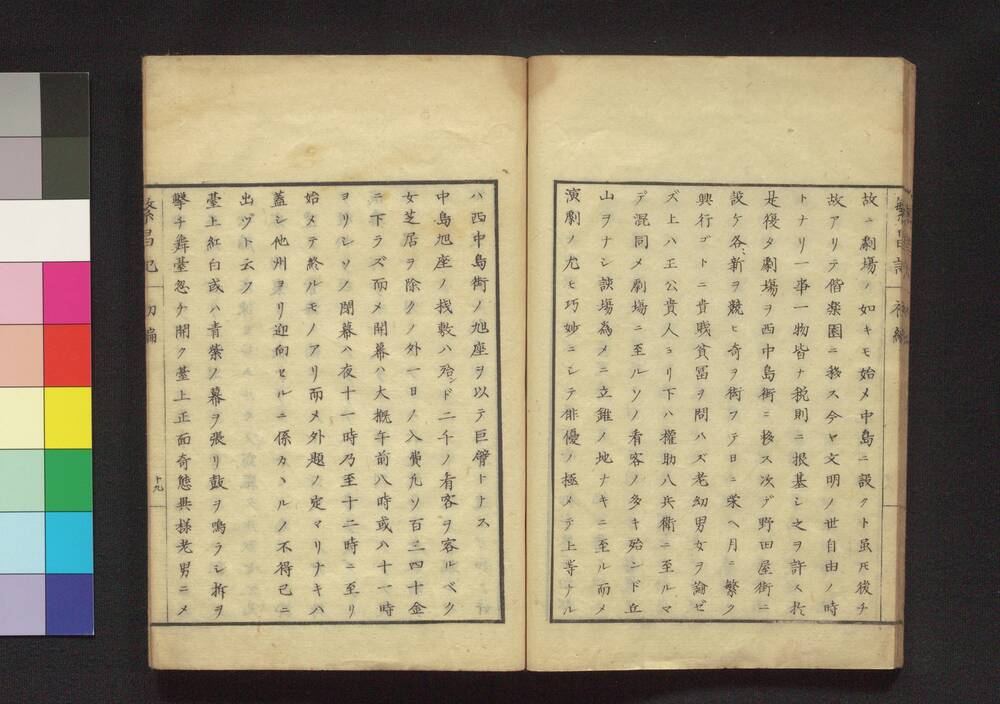 繁昌記 初編
故ニ劇場ノ如キモ始メ中島ニ設クト虽𪜈後チ
故アリテ偕楽園ニ移ス今ヤ文明ノ世自由ノ時
トナリ一事一物皆ナ税則ニ根基シ之ヲ許ス於
是復タ劇場ヲ西中島街ニ移ス次デ野田屋街ニ
設ケ各〻新ヲ競ヒ奇ヲ衒フテ日ニ栄ヘ月ニ繁ク
興行ゴトニ貴賎貧冨ヲ問ハズ老幼男女ヲ論ゼ
ズ上ハ王公貴人ヨリ下ハ權助八兵衛ニ至ルマ
デ混同メ劇場ニ至ルソノ看客ノ多キ殆ンド立
山ヲナシ謨場為メニ立錐ノ地ナキニ至ル而メ
演劇ノ尤モ巧妙ニシテ俳優ノ極メテ上等ナル
ハ西中島街ノ旭座ヲ以テ巨臂トナス
中島旭座ノ桟敷ハ殆ンド二千ノ看客ヲ容ルベク
女芝居ヲ除クノ外一日ノ入費凡ソ百三四十金
ニ下ラズ而メ開幕ハ大概午前八時或ハ十一時
ヨリシソノ閉幕ハ夜十一時乃至十二時ニ至リ
始メテ終ルモノアリ而メ外題ノ定マリナキハ
蓋シ他州ヨリ迎向セルニ係カヽルノ不得已ニ
出ヅト云フ
臺上紅白或ハ青紫ノ幕ヲ張リ鼓ヲ鳴ラシ柝ヲ
撃チ舞臺忽チ開ク臺上正面奇態異様老男ニメ
繁昌記 初編 十九